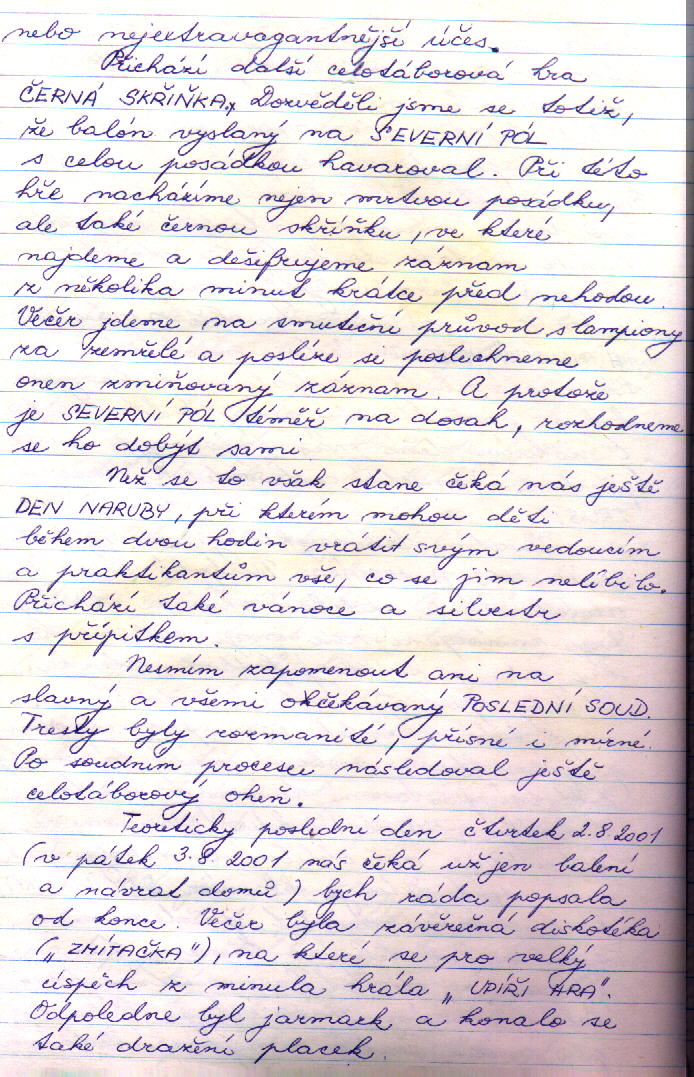 nebo nejextravagantnější účes.
Přichází další celotáborová hra
ČERNÁ SKŘIŇKA. Dozvěděli jsme se totiž,
že balón vyslaný na SEVERNÍ PÓL
s celou posádkou havaroval. Při této
hře nacházíme nejen mrtvou posádku,
ale také černou skříňku, ve které
najdeme a dešifrujeme záznam
z několika minut krátce před nehodou.
Večer jdeme na smuteční průvod s lampiony
za zemřelé a posléze si poslechneme
onen zmiňovaný záznam. A protože
je SEVERNÍ PÓL téměř na dosah, rozhodneme
se ho dobýt sami.
Než se to však stane čeká nás ještě
DEN NARUBY, při kterém mohou děti
během dvou hodin vrátit svým vedoucím
a praktikantům vše, co se jim nelíbilo.
Přichází také vánoce a silvestr
s přípitkem.
Nesmím zapomenout ani na
slavný a všemi očekávaný POSLEDNÍ SOUD.
Tresty byly rozmanité, přísné i mírné.
Po soudním procesu následoval ještě
celotáborový oheň.
Teoreticky poslední den čtvrtek 2.8.2001
(v pátek 3.8.2001 nás čeká už jen balení
a návrat domů) bych ráda popsala
od konce. Večer byla závěrečná diskotéka
(„ZMÍTAČKA“), na které se pro velký
úspěch z minula hrála „UPÍŘI HRA“.
Odpoledne byl jarmark a konalo se
také dražení placek.